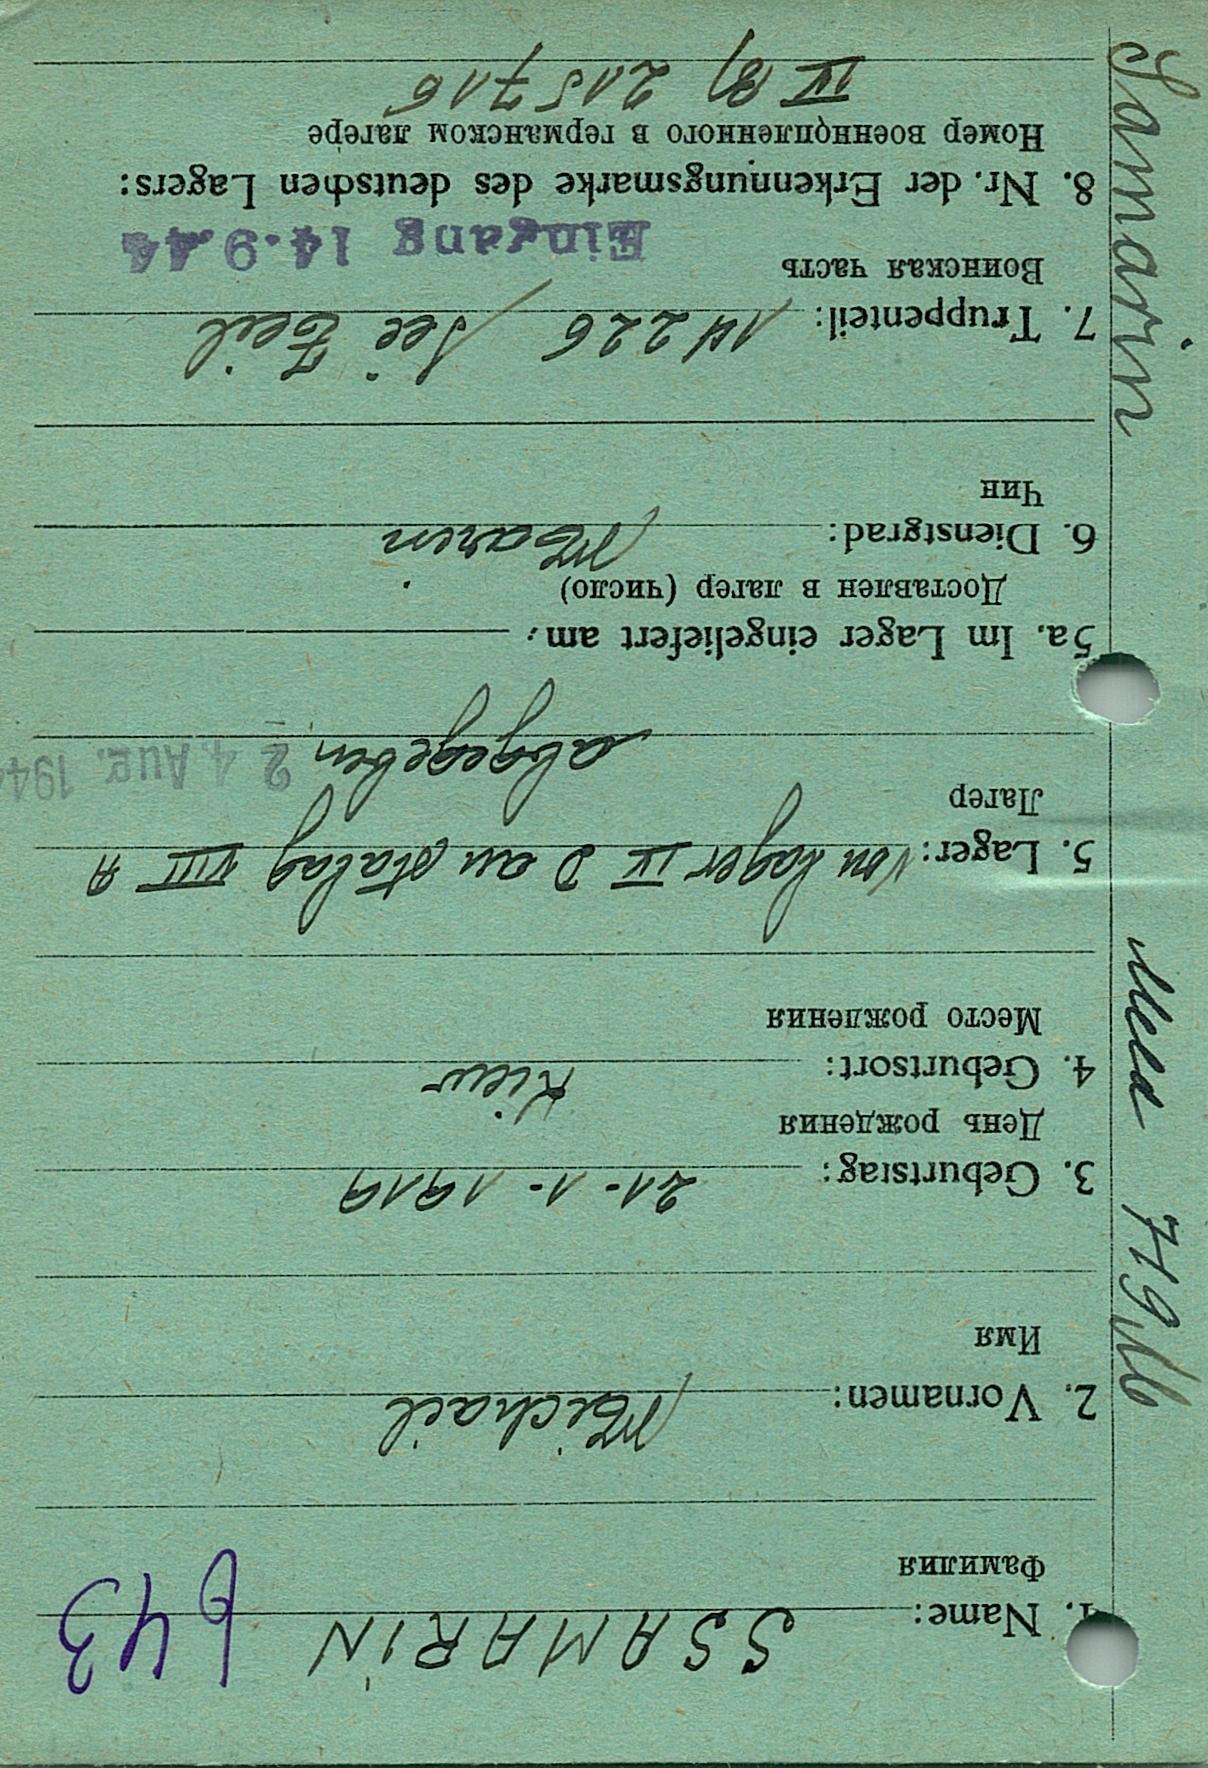 1. Name: SSAMARIN 643
Фамилия
2. Vornamen: Michail
Имя
3. Geburtstag: 21-1-1919
День рождения
4. Geburtsort: Kiew
Место рождения
5. Lager: von Lager IV D an Stalag VIII A
Лагер
abgegeben 24. Aug. 194
5a. Im Lager eingeliefert am:
Доставлен в лагер (число)
6. Dienstgrad: Marin
Чин
7. Truppenteil: 14226 See Teil
Воинская часть
Eingang 14.9.44
8. Nr. der Erkennungsmarke des deutschen Lagers:
Номер военнопленного в германском лагере
IV B) 215716
Samarin